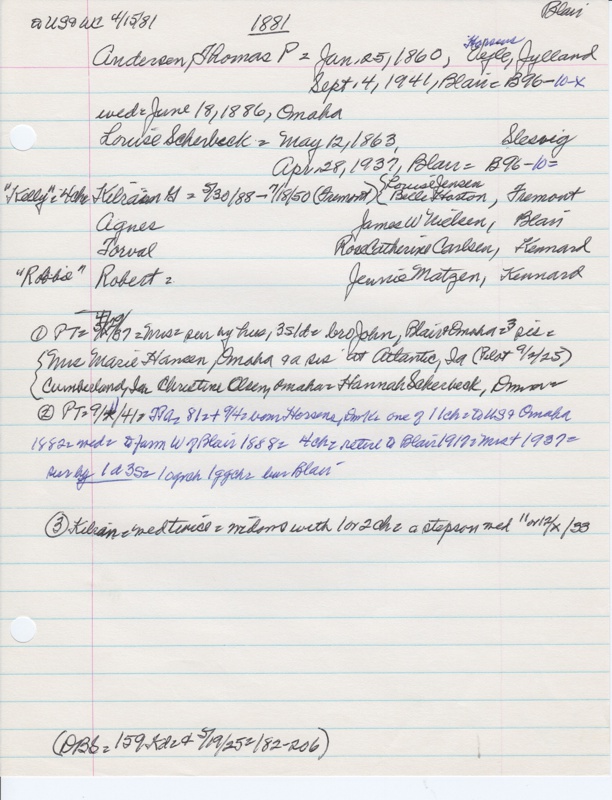 a USA WC 4/15/81 1881 Blair
Andersen, Thomas P = Jan. 25, 1860, Horsens Vejle, Jylland
Sept. 4, 1941, Blair = B96-10-x
wed = June 18, 1886, Omaha
Louise Scherbeck = May 12, 1863, Slesvig
Apr. 28, 1937, Blair = B96-10=
"Kelly" = 4ch Kelsian H = 5/30/88 - 7/18/50 (Fremont) { Louise Jensen
Belle Hoxton, Fremont
Agnes James W Nielsen, Blair
Torval Rose Catherine Carlsen, Kennard
"Robbie" Robert = Jennie Matzen, Kennard
① PT = /37 = Mrs = sur by hus, 3s 1d = bro John, Blair & Omaha = 3 sis =
{ Mrs Marie Hansen, Omaha = a sis at Atlantic, Ia (Pilot 9/2/25)
{ Cumberland, Ia Christine Olsen, Omaha = Hannah Scherbeck, Dmm =
② PT = 9/11/41 = TPA = 81 = + 9/4 = born Horsens, Dmk = one of 11 ch = to USA Omaha
1882 = wed = to farm W of Blair 1888 = 4ch = retire to Blair 1917 = Mrs + 1937 =
sur by 1d 3s = 10 grch 1 ggch = bur Blair
③ Kelsian = wed twice = mdoms with 1 or 2 ch = a stepson wed 11 or 12/x/33
(DBb = 159 Kd = + 5/19/25 = 182-206)